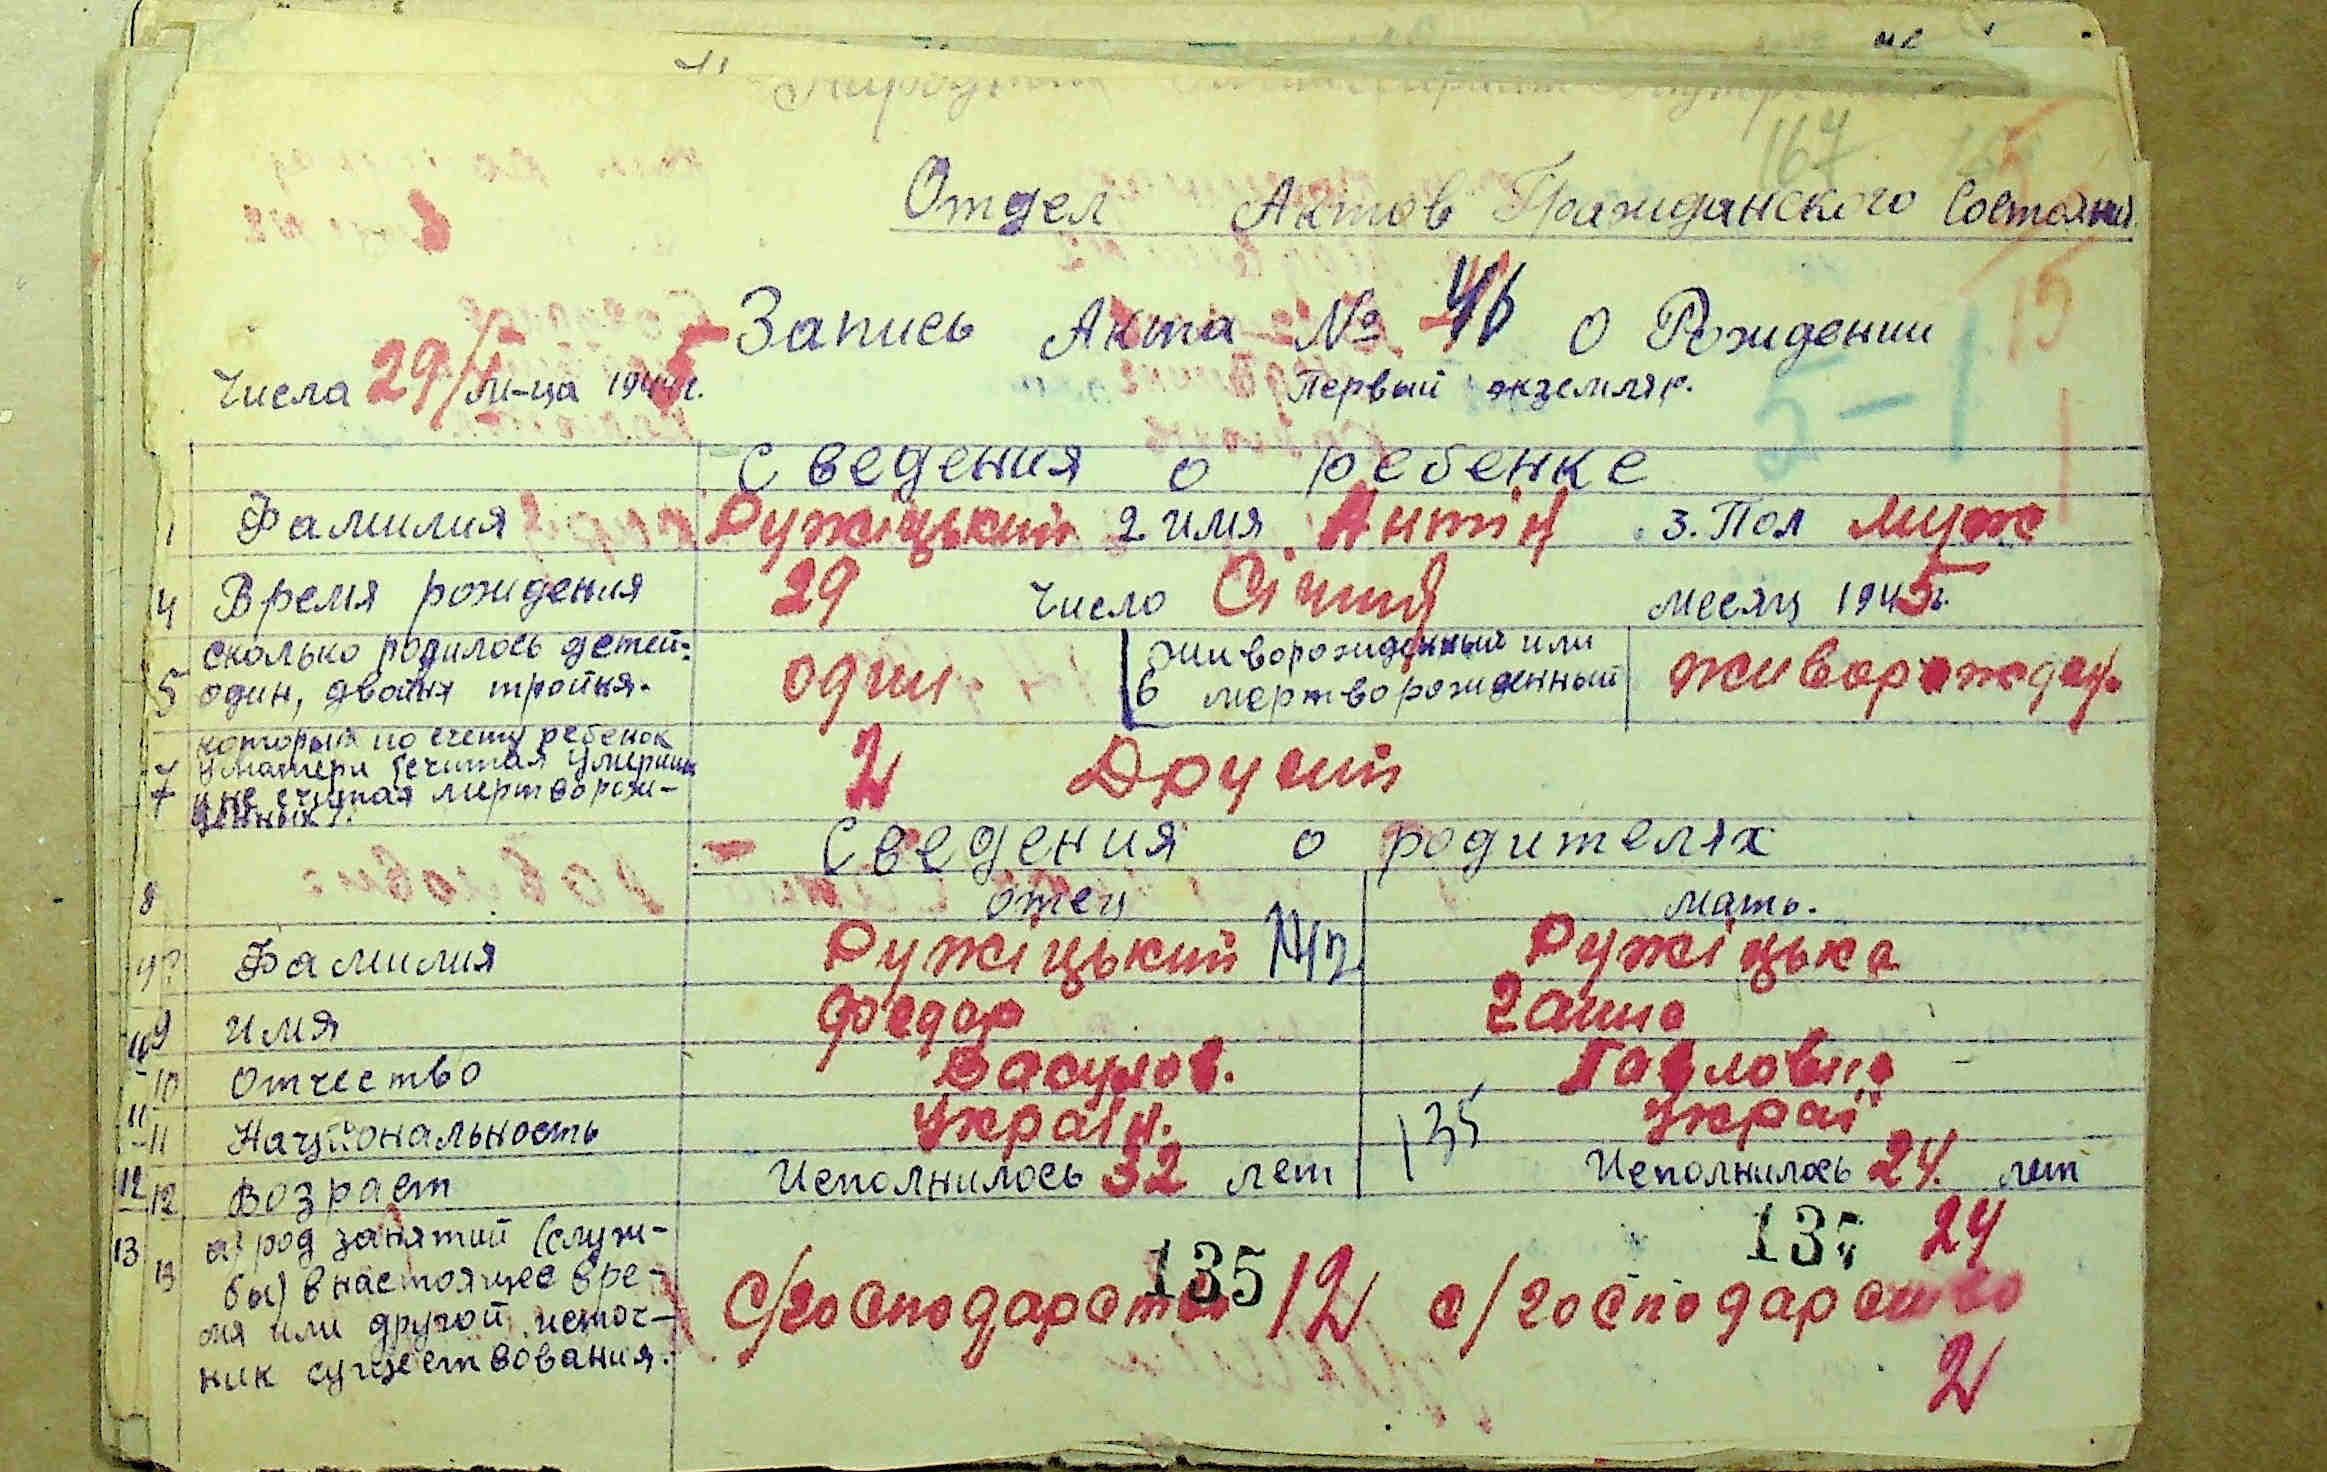 167
Отдел Актов Гражданского Состояния
15
Запись Акта № 46 о Рождении
Числа 29/I м-ца 1945г. Первый экземпляр.
5-1
Сведения о ребенке
1 Фамилия Ружіцький 2. имя Антін 3. Пол муж
4 Время рождения 29 число Січня месяц 1945г.
сколько родилось детей:
5 один, двойня тройня. один. 6 живорожденный или мертворожденный живорожден.
который по счету ребенок
7 у матери (считая умерших
и не считая мертворож-
денных). 2 Другий
Сведения о родителях
8 отец мать.
Фамилия Ружіцький Ружіцька
9 имя Федор Ганна
10 Отчество Васулов. Павловна
11 Национальность Україн. Украі 135
12 Возраст Исполнилось 32 лет Исполнилось 24. лет
13 а) род занятий (служ-
бы) в настоящее вре-
мя или другой источ-
ник существования.
135 24
с/господарство 12 с/господарство
2